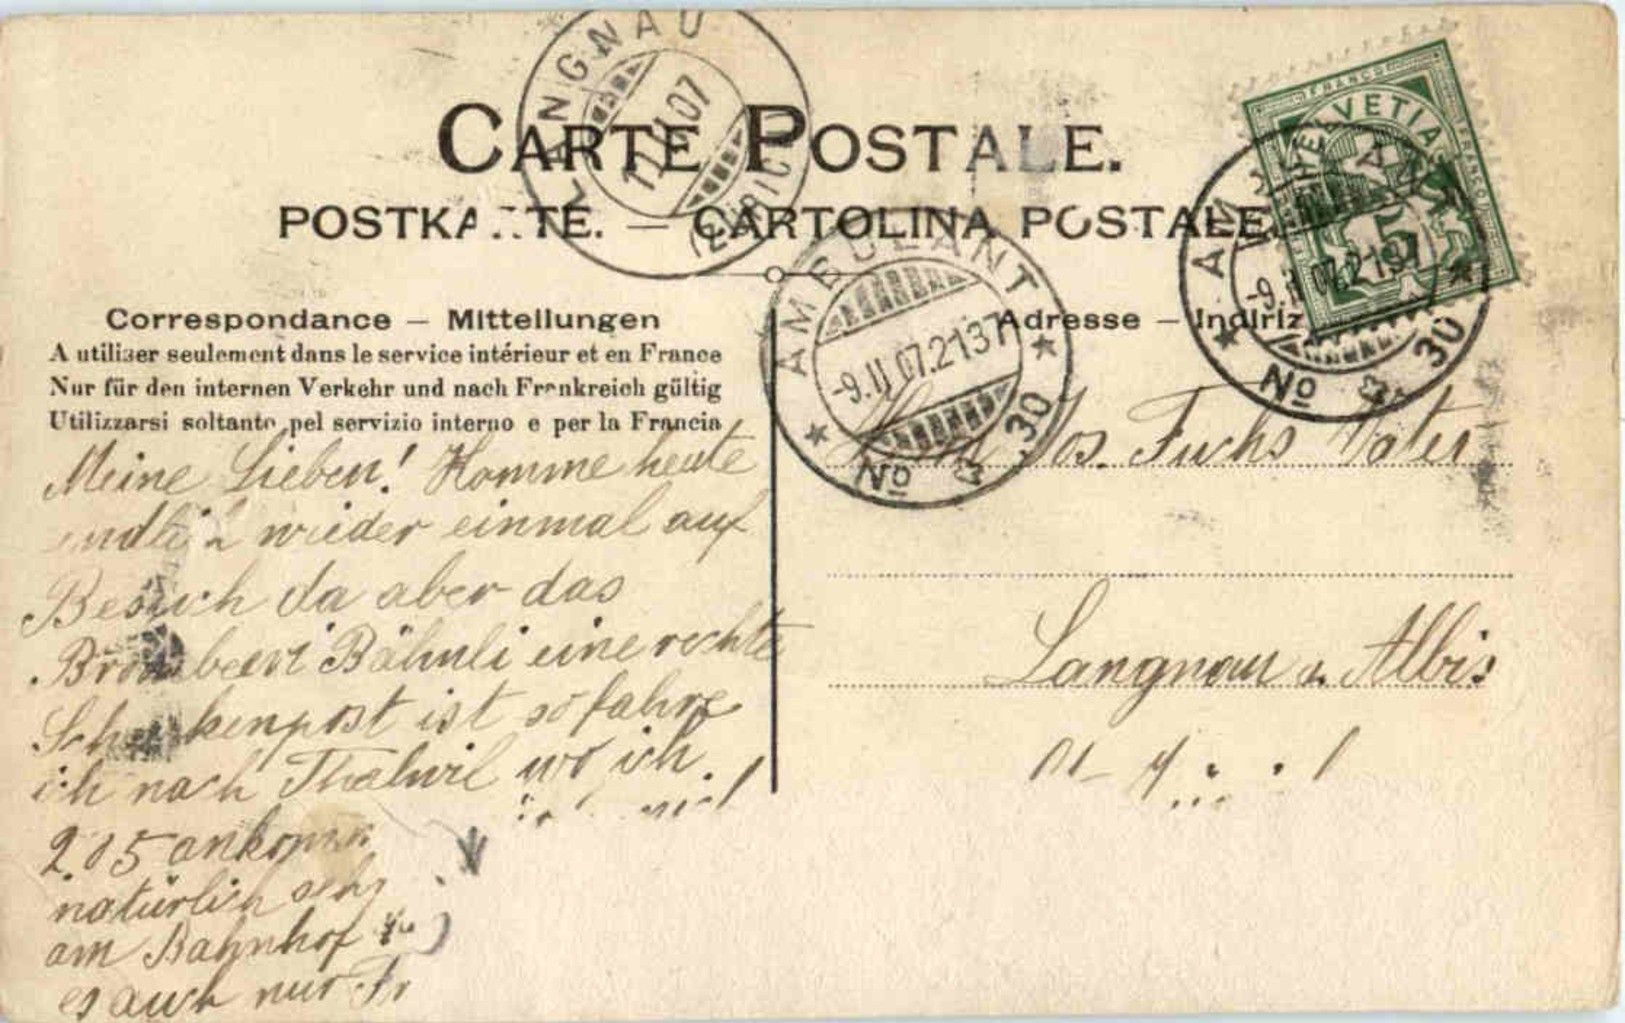 LANGNAU
11.II.07
(ZÜRICH)
CARTE POSTALE.
POSTKARTE. — CARTOLINA POSTALE.
FRANCO
HELVETIA
FRANCO
5
AMBULANT
-9.II.07.2137
No 30
AMBULANT
-9.II.07.2137
No 30
Correspondance — Mitteilungen
A utiliser seulement dans le service intérieur et en France
Nur für den internen Verkehr und nach Frankreich gültig
Utilizzarsi soltanto pel servizio interno e per la Francia
Meine Lieben! Komme heute
endlich wieder einmal auf
Besuch da aber das
Bähnli eine rechte
Schneckenpost ist so fahre
ich nach Thalwil wo ich
2.05 ankomme
natürlich
am Bahnhof
es auch nur
Adresse — Indiriz
Jos. Fuchs Vater
Langnau a. Albis